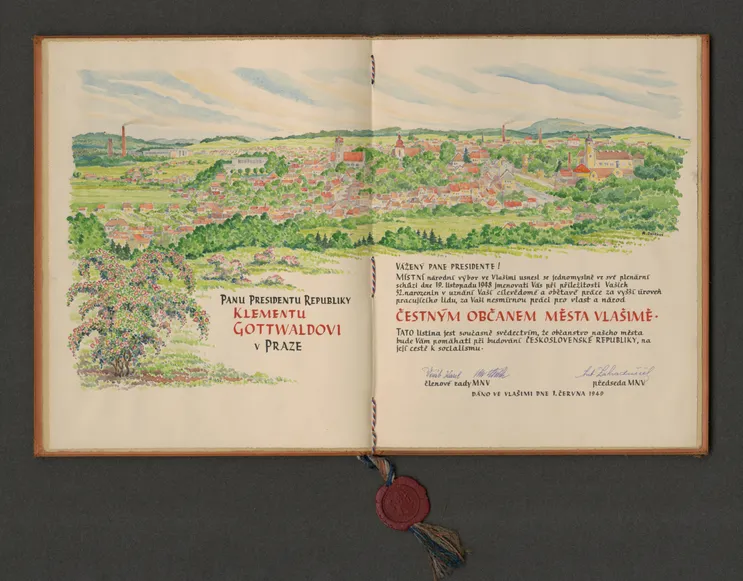 PANU PRESIDENTU REPUBLIKY
KLEMENTU
GOTTWALDOVI
V PRAZE
VÁŽENÝ PANE PRESIDENTE!
MÍSTNÍ národní výbor ve Vlašimi usnesl se jednomyslně ve své plenární
schůzi dne 19. listopadu 1948 jmenovati Vás při příležitosti Vašich
52. narozenin v uznání Vaší cílevědomé a obětavé práce za vyšší úroveň
pracujícího lidu, za Vaši nesmírnou práci pro vlast a národ
ČESTNÝM OBČANEM MĚSTA VLAŠIMĚ.
TATO listina jest současně svědectvím, že občanstvo našeho města
bude Vám pomáhati při budování ČESKOSLOVENSKÉ REPUBLIKY, na
její cestě k socialismu.
členové rady MNV
předseda MNV
DÁNO VE VLAŠIMI DNE 1. ČERVNA 1949